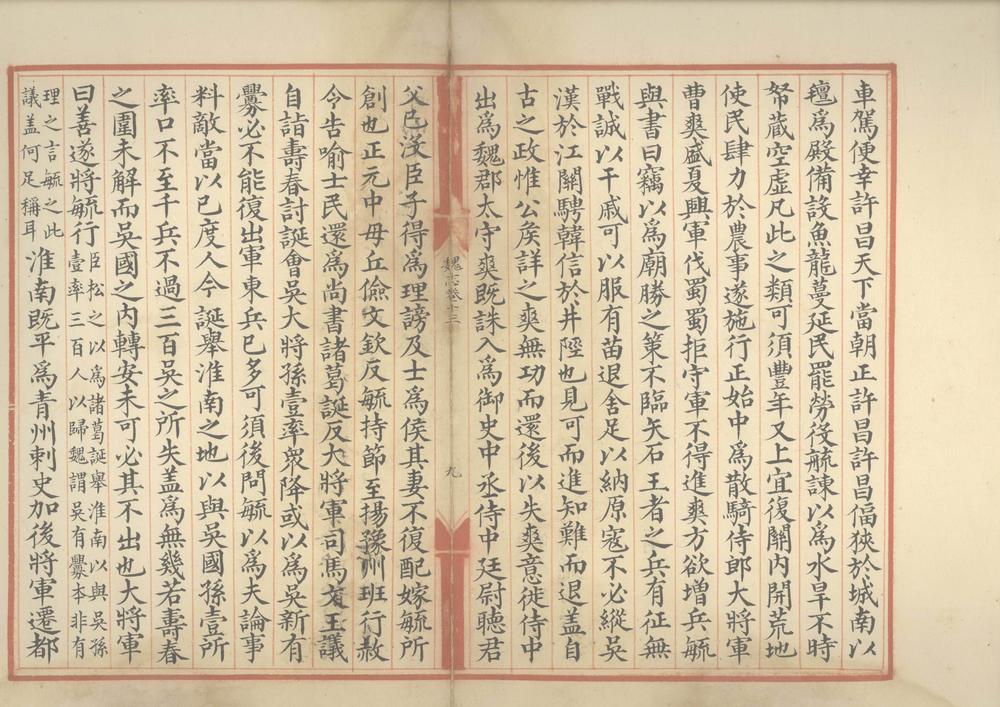 車駕便幸許昌天下當朝正許昌許昌偪狹於城南以
氊爲殿備設魚龍蔓延民罷勞役毓諫以爲水旱不時
帑藏空虛凡此之類可須豐年又上宜復關內開荒地
使民肆力於農事遂施行正始中爲散騎侍郎大將軍
曹爽盛夏興軍伐蜀蜀拒守軍不得進爽方欲增兵毓
與書曰竊以爲廟勝之策不臨矢石王者之兵有征無
戰誠以干戚可以服有苗退舍足以納原寇不必縱吳
漢於江關騁韓信於井陘也見可而進知難而退蓋自
古之政惟公矦詳之爽無功而還後以失爽意徙侍中
出爲魏郡太守爽旣誅入爲御史中丞侍中廷尉聽君
魏志卷十三
九
父已沒臣子得爲理謗及士爲侯其妻不復配嫁毓所
創也正元中毋丘儉文欽反毓持節至揚豫州班行赦
令告喻士民還爲尚書諸葛誕反大將軍司馬文王議
自詣壽春討誕會吳大將孫壹率衆降或以爲吳新有
釁必不能復出軍東兵已多可須後問毓以爲夫論事
料敵當以已度人今誕舉淮南之地以與吳國孫壹所
率口不至千兵不過三百吳之所失蓋爲無幾若壽春
之圍未解而吳國之內轉安未可必其不出也大將軍
曰善遂將毓行臣松之以爲諸葛誕舉淮南以與吳孫
壹率三百人以歸魏謂吳有釁本非有
理之言毓之此
議蓋何足稱耳淮南旣平爲青州刺史加後將軍遷都